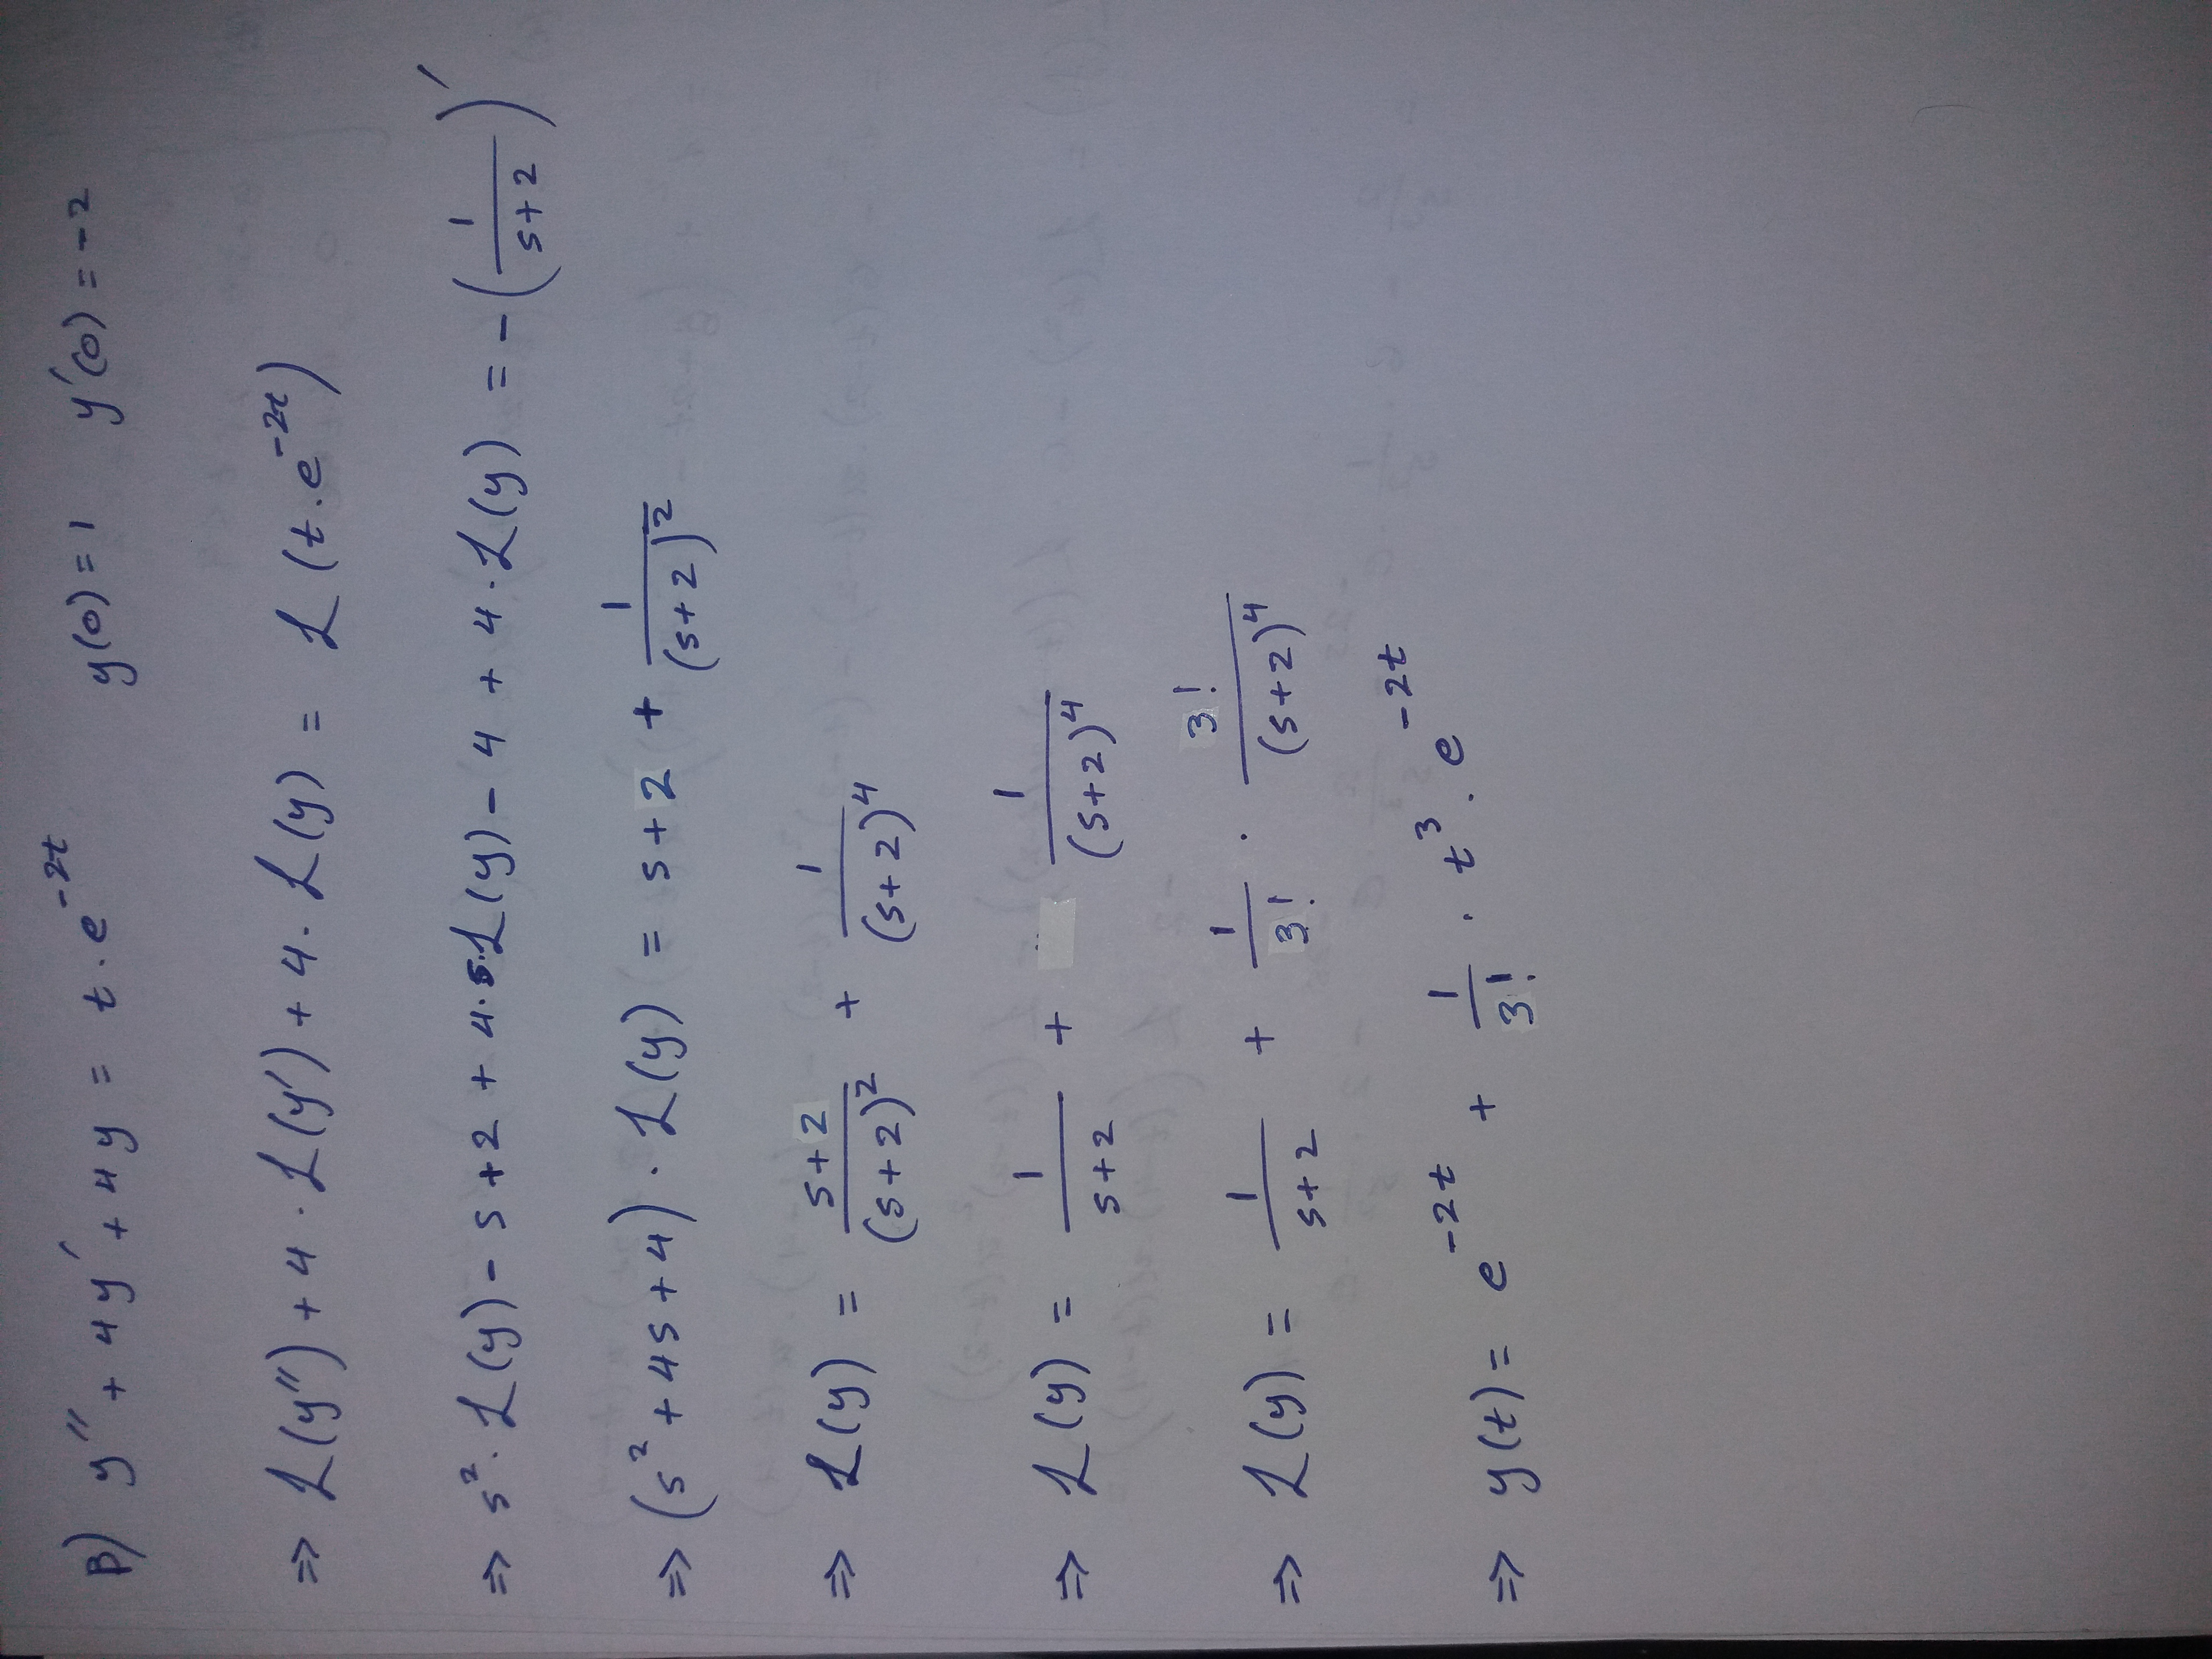 B) y'' + 4y' + 4y = t · e^{-2t}   y(0) = 1   y'(0) = -2
⇒ L(y'') + 4 · L(y') + 4 · L(y) = L(t · e^{-2t})
⇒ s² · L(y) - s + 2 + 4 · s · L(y) - 4 + 4 · L(y) = - (1/(s+2))'
⇒ (s² + 4s + 4) · L(y) = s + 2 + 1/(s+2)²
⇒ L(y) = (s+2)/(s+2)² + 1/(s+2)⁴
⇒ L(y) = 1/(s+2) + 1/(s+2)⁴
⇒ L(y) = 1/(s+2) + 1/3! · 3!/(s+2)⁴
⇒ y(t) = e^{-2t} + 1/3! · t³ · e^{-2t}